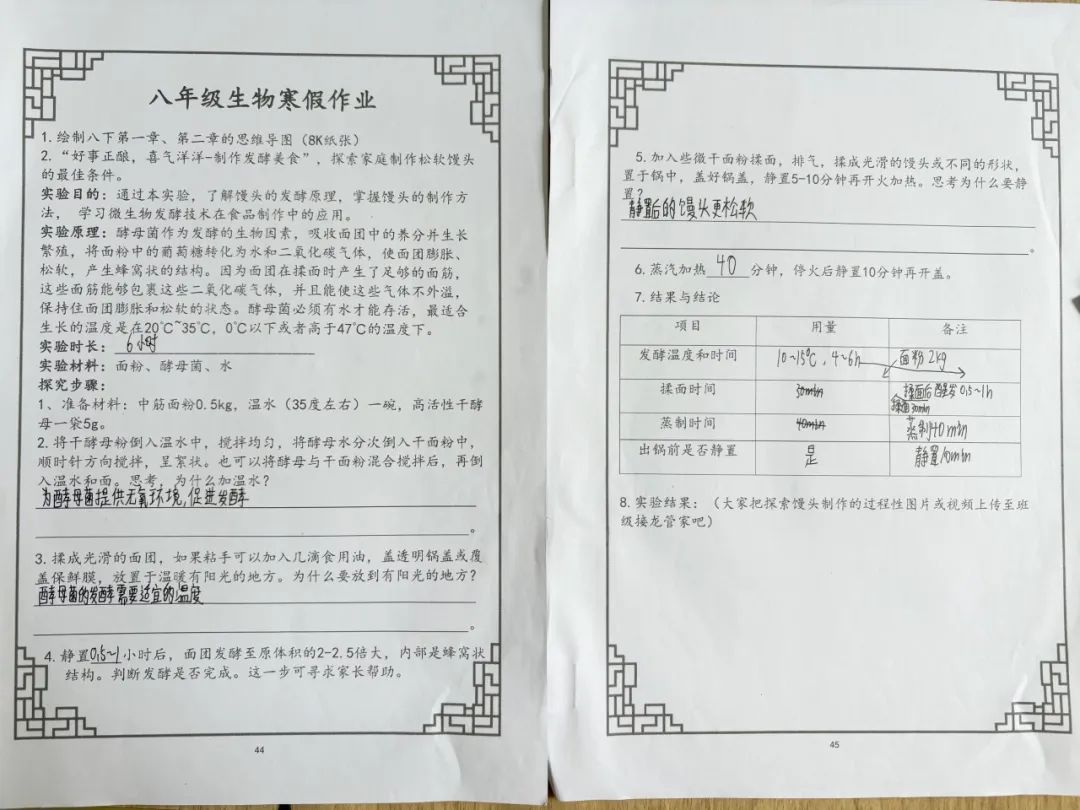 八年级生物寒假作业
1. 绘制八下第一章、第二章的思维导图（8K纸张）
2. “好事正酿，喜气洋洋-制作发酵美食”，探索家庭制作松软馒头
的最佳条件。
实验目的：通过本实验，了解馒头的发酵原理，掌握馒头的制作方
法， 学习微生物发酵技术在食品制作中的应用。
实验原理：酵母菌作为发酵的生物因素，吸收面团中的养分并生长
繁殖，将面粉中的葡萄糖转化为水和二氧化碳气体，使面团膨胀、
松软，产生蜂窝状的结构。因为面团在揉面时产生了足够的面筋，
这些面筋能够包裹这些二氧化碳气体，并且能使这些气体不外溢，
保持住面团膨胀和松软的状态。酵母菌必须有水才能存活，最适合
生长的温度是在20℃~35℃，0℃以下或者高于47℃的温度下。
实验时长：6小时
实验材料：面粉、酵母菌、水
探究步骤：
1、准备材料：中筋面粉0.5kg，温水（35度左右）一碗，高活性干酵
母一袋5g。
2. 将干酵母粉倒入温水中，搅拌均匀，将酵母水分次倒入干面粉中，
顺时针方向搅拌，呈絮状。也可以将酵母与干面粉混合搅拌后，再倒
入温水和面。思考，为什么加温水？
为酵母菌提供无氧环境，促进发酵
。
3. 揉成光滑的面团，如果粘手可以加入几滴食用油，盖透明锅盖或覆
盖保鲜膜，放置于温暖有阳光的地方。为什么要放到有阳光的地方？
酵母菌的发酵需要适宜的温度
。
4. 静置0.5~1小时后，面团发酵至原体积的2-2.5倍大，内部是蜂窝状
结构。判断发酵是否完成。这一步可寻求家长帮助。
44
5. 加入些微干面粉揉面，排气，揉成光滑的馒头或不同的形状，
置于锅中，盖好锅盖，静置5-10分钟再开火加热。思考为什么要静
置？
静置后的馒头更松软
。
6. 蒸汽加热40分钟，停火后静置10分钟再开盖。
7. 结果与结论
项目 用量 备注
发酵温度和时间 10~15℃，4~6h 面粉2kg
揉面时间 30min 揉面后醒发0.5~1h
揉面30min
蒸制时间 40min 蒸制40min
出锅前是否静置 是 静置10min
8. 实验结果：（大家把探索馒头制作的过程性图片或视频上传至班
级接龙管家吧）
45